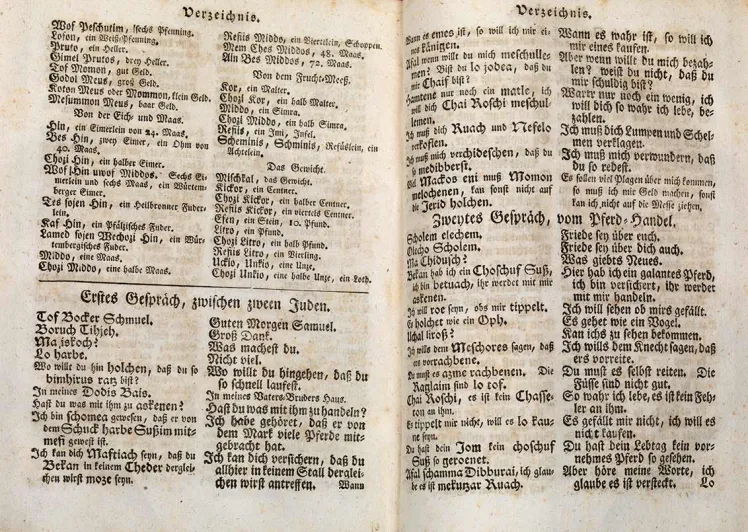 Verzeichnis.
Wof Peschutim, sechs Pfenning.
Lofon, ein Weiß-Pfenning.
Pruto, ein Heller.
Gimel Prutos, drey Heller.
Tof Momon, gut Geld.
Godol Meus, groß Geld.
Koton Meus oder Mommon, klein Geld.
Mesummon Meus, baar Geld.
Von der Eich- und Maas.
Hin, ein Eimerlein von 24. Maas.
Bes Hin, zwey Eimer, ein Ohm von
40. Maas.
Chozi Hin, ein halber Eimer.
Wof Hin uwof Middos. Sechs Ei-
merlein und sechs Maas, ein Würtem-
berger Eimer.
Tes sojen Hin, ein Heilbronner Fuder-
lein.
Kaf Hin, ein Pfälzisches Fuder.
Lamed sojen Wechozi Hin, ein Wür-
tembergisches Fuder.
Middo, eine Maas.
Chozi Middo, eine halbe Maas.
Refiis Middo, ein Viertelein, Schoppen.
Mem Ches Middos, 48. Maas.
Ain Bes Middos, 72. Maas.
Von dem Frucht-Meeß.
Kor, ein Malter.
Chozi Kor, ein halb Malter.
Middo, ein Simra.
Chozi Middo, ein halb Simra.
Refiis, ein Imi, Insel.
Scheminis, Schminis, Refüslein, ein
Achtelein.
Das Gewicht.
Mischkal, das Gewicht.
Kickor, ein Centner.
Chozi Kickor, ein halber Centner.
Refiis Kickor, ein viertels Centner.
Efen, ein Stein, 10. Pfund.
Litro, ein Pfund.
Chozi Litro, ein halb Pfund.
Refiis Litro, ein Vierling.
Unkio, Uckio, eine Unze.
Chozi Unkio, eine halbe Unze, ein Loth.
Erstes Gespräch, zwischen zween Juden.
Tof Bocker Schmuel.
Boruch Tihjeh.
Ma iskoch?
Lo harbe.
Wo willt du hin holchen, daß du so
bimhirus ratz bist?
In meines Dodis Bais.
Hast du was mit ihm zu askenen?
Ich bin schomea gewesen, daß er von
dem Schuck harbe Sußim mit-
mesi gewest ist.
Ich kan dich Mastiach seyn, daß du
Bekan in keinem Cheder derglei-
chen wirst moze seyn.
Guten Morgen Samuel.
Groß Dank.
Was machest du.
Nicht viel.
Wo willt du hingehen, daß du
so schnell laufest.
In meines Vaters-Bruders Haus.
Hast du was mit ihm zu handeln?
Ich habe gehöret, daß er von
dem Mark viele Pferde mit-
gebracht hat.
Ich kan dich versichern, daß du
allhier in keinem Stall derglei-
chen wirst antreffen.
Wann
Verzeichnis.
Wann es emes ist, so will ich mir ei-
nes känigen.
Afal wenn willt du mich meschulle-
men? Bist du lo jodea, daß du
mir Chaif bist?
Hamtene nur noch ein matle, ich
will dich Chai Roschi meschul-
lemen.
Ich muß dich Ruach und Nefelo
verkosien.
Ich muß mich verchideschen, daß du
so medibberst.
Viel Mackos eni muß Momon
melochenen, kan sonst nicht auf
die Jerid holchen.
Wann es wahr ist, so will ich
mir eines kaufen.
Aber wenn willt du mich bezah-
len? weist du nicht, daß du
mir schuldig bist?
Warte nur noch ein wenig, ich
will dich so wahr ich lebe, be-
zahlen.
Ich muß dich Lumpen und Schel-
men verklagen.
Ich muß mich verwundern, daß
du so redest.
Es sollen viel Plagen über mich kommen,
so muß ich mir Geld machen, sonst
kan ich nicht auf die Messe ziehen.
Zweytes Gespräch, vom Pferd-Handel.
Scholem elechem.
Olecho Scholem.
Ma Chidusch?
Bekan hab ich ein Choschuf Suß,
ich bin betuach, ihr werdet mit mir
askenen.
Ich will roe seyn, obs mir tippelt.
Es holchet wie ein Oph.
Uchal liroß?
Ich wills dem Meschores sagen, daß
ers vorrachbene.
Du must es azme rachbenen. Die
Raglaim sind lo tof.
Chai Roschi, es ist kein Chasse-
ron an ihm.
Es tippelt mir nicht, will es lo kau-
ne seyn.
Du hast dein Jom kein choschuf
Suß so geroenet.
Afal schamma Dibburai, ich glau-
be es ist mekutzar Ruach.
Friede sey über euch.
Friede sey über dich auch.
Was giebts Neues.
Hier hab ich ein galantes Pferd,
ich bin versichert, ihr werdet
mit mir handeln.
Ich will sehen ob mirs gefällt.
Es gehet wie ein Vogel.
Kan ichs zu sehen bekommen.
Ich wills dem Knecht sagen, daß
ers vorreite.
Du must es selbst reiten. Die
Füsse sind nicht gut.
So wahr ich lebe, es ist kein Feh-
ler an ihm.
Es gefällt mir nicht, ich will es
nicht kaufen.
Du hast dein Lebtag kein vor-
nehmes Pferd so gesehen.
Aber höre meine Worte, ich
glaube es ist versteckt.
Lo